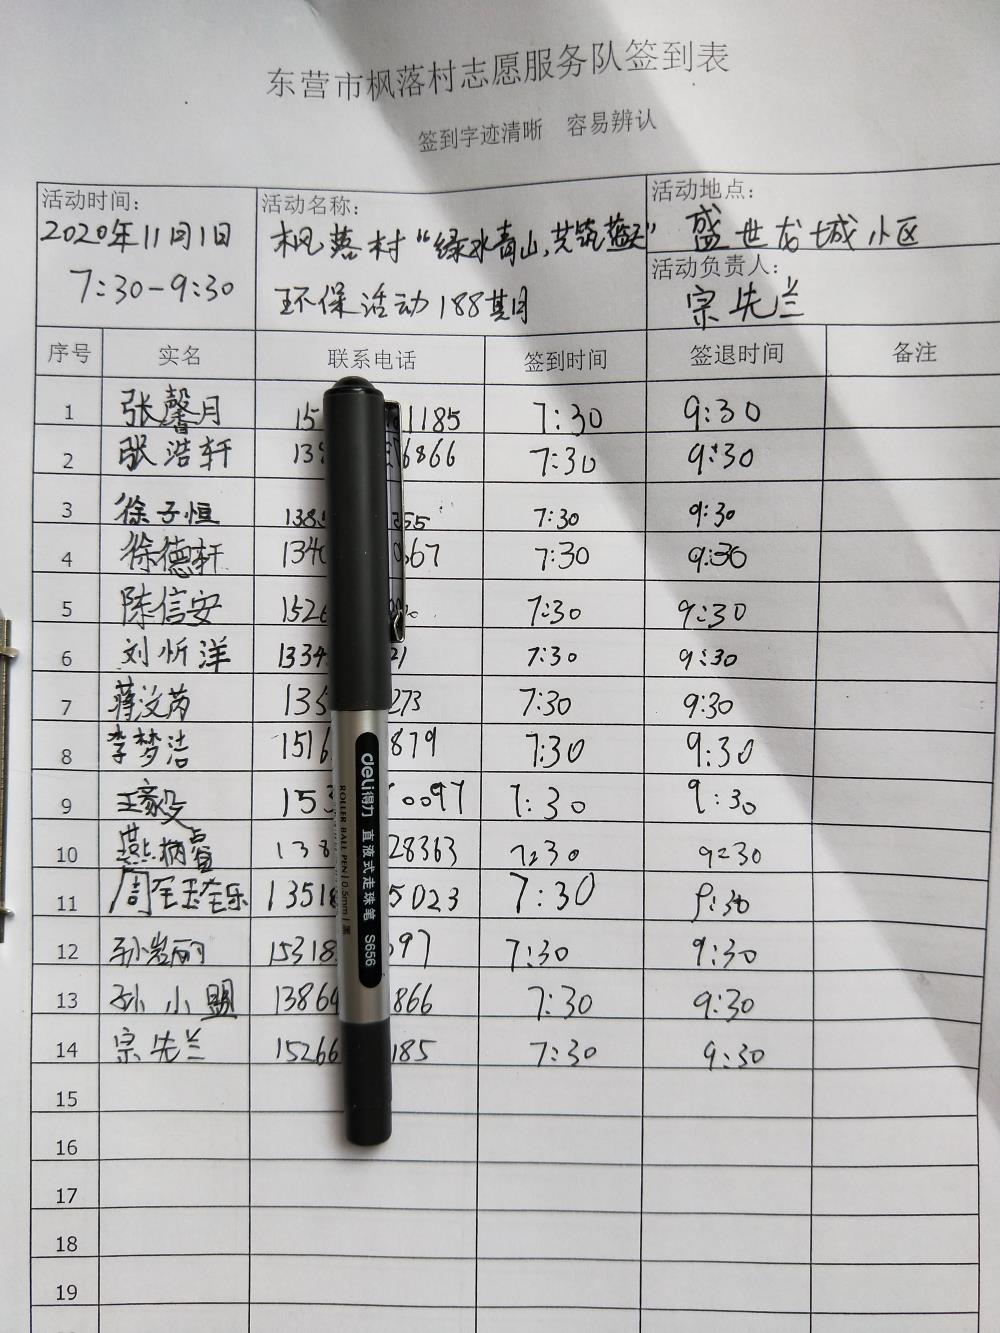 东营市枫落村志愿服务队签到表
签到字迹清晰 容易辨认
活动时间:
2020年11月1日
7:30-9:30
活动名称:
枫落村“绿水青山,共筑蓝天”
环保活动188期
活动地点:
盛世龙城小区
活动负责人:
宗先兰
序号 实名 联系电话 签到时间 签退时间 备注
1 张馨月 15 1185 7:30 9:30
2 张浩轩 138 6866 7:30 9:30
3 徐子恒 1385 355 7:30 9:30
4 徐德轩 1340 0667 7:30 9:30
5 陈信安 1526 7:30 9:30
6 刘忻洋 1334 21 7:30 9:30
7 蒋汶芮 135 273 7:30 9:30
8 李梦洁 1516 879 7:30 9:30
9 王毅 153 0097 7:30 9:30
10 燕炳睿 138 28363 7:30 9:30
11 周 13518 5023 7:30 9:30
12 孙岩丽 15318 097 7:30 9:30
13 孙小盟 13864 866 7:30 9:30
14 宗先兰 15266 185 7:30 9:30
15
16
17
18
19
deli得力 直液式走珠笔 S656
ROLLER BALL PEN | 0.5mm | 黑